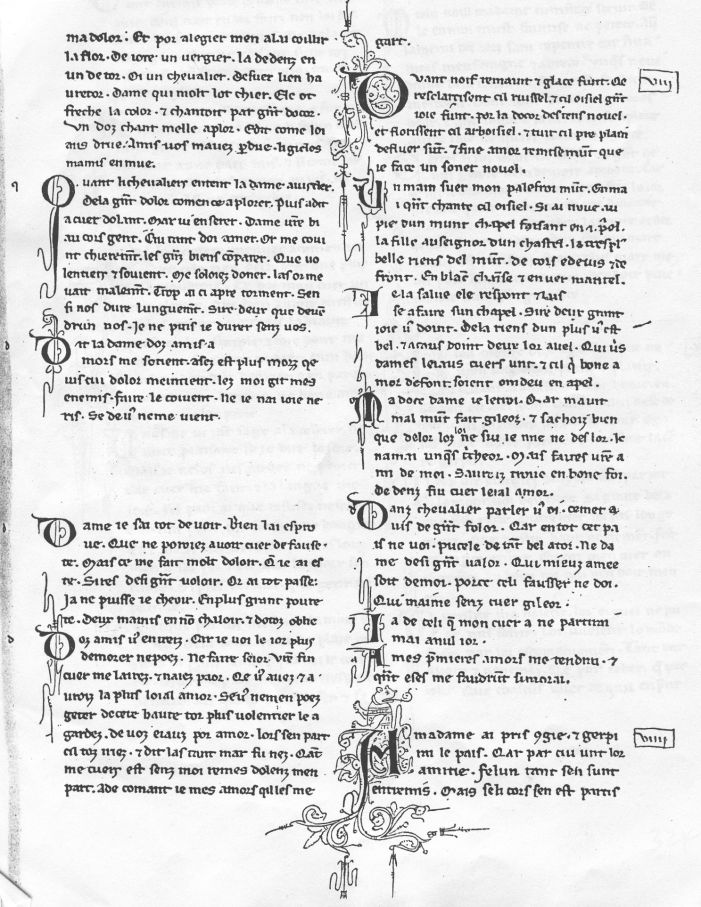 ma dolor : Et por alegier men alai coillir
la flor . De iote un vergier . la dedenz en
un destor . Oi un chevalier . desuer lieu ha
utetor . dame qui molt lot chier . Ele ot
fresche la color . & chantoit par gñt docor .
un doz chant melle a plor . Edit come loi
aus drue . Amis vos mauez pdue . li gielos
mamis en mue .
Quant li chevalierſ entent la dame au vis cler .
Dela gñt dolor comence a plorer . Puis a dit
a cuer dolant . Mar vi en serer . Dame vr̄e bi
au cors gent . Qui tant doi amer . Or me coui
nt chierem̄t . les gñz biens cōparer . Que vo
lentiers & souent . Me soloiez doner . las or me
vait malem̄t . Trop a ci apre torment . Sen
si nos dure longuem̄t . Sire deus que deuen̄
drun nos . Ie ne puis ie durer senz uos .
Dit la dame doz amis a
mors me sotient . asez est plus morz qe
uis cui dolor meintient . lez moi git mes
enemis . faire le couient . Ne ie nai ioie ne
ris . Se de u' ne me vient .
Dame ie sai tot de uoir . Bien lai espro
ue . Que ne porriez auoir cuer de fausse
te . Mais ce me fait molt doloir . Q̄ ie ai es
te . Sires de si gñt uoloir . Or ai tot passe :
Ia ne puisse ie cheoir . En plus grant pouer
te . Deus ma mis en nō chaloir . & dotez oblie
Doz amis u' en irez . Car ie voi le ior plus
demorer ne poez . Ne faire seior . vr̄e fin
cuer me lairez . & naiez paor . Qe u' auez & a
uroiz la plus loial amor . Se u' ne men poez
geter de cete haute tor plus volentier le a
gardez . de voz eiauz por amor . lors sen part
cil toz iriez . & dit las tant mar fu nez . Qant
mes cuerſ est senz moi remes dolenz men
part . A de comant ie mes amors qui les me
gart .
Quant nois remaint & glace funt . Qe
resclarcisent cil ruissel . & cil oisiel gñt
ioie funt . por la docor des tens nouel .
et florissent cil arboisel . & tuit cil pre plain
de flor sūt . & fine amor me semūt que
ie face un sonet nouel .
Un main suer mon palefroi mūt . En ma
i qñt chante cil oisel . Si ai troue au
pie dun munt chapel faisant en i p̄ol .
la fille au seignor dun chastel . la tres pl'
belle riens del mūt . de cors e de uis & de
front . En blāc chāise & en ver mantel .
Ie la salue ele respont & laus
se a faire sun chapel . Sire deus gnint
ioie u' doint . de la riens dun plus u' est
bel . & a touz doint deus lor auel . Qui uers
dames leiaus cuers unt . & cil q̄ bone a
mor defont . soient om deu en apel .
Ma doce dame ie lenpi . Qar mauit
mal mūt fait gileoz . & sachoiz bien
que de lor loz ne sui ie nne ne des lor . Ie
nam ai unqs tcheor . Mais faites vr̄e a
mi de moi . Sauriez troue en bone foi .
de denz fin cuer leial amor .
Danz chevalier parler u' oi . come q̄
uis de gñt folor . Qar en tot cet pa
is ne voi . pucele de tāt bel ator . Ne da
me de si gñt ualor . Qui mieuz amee
soit de moi . porce celi fausser ne doi .
Qui maime senz cuer gileor :
Ia de celi q̄ mon cuer a ne partira
mai a nul ior .
A mes p̄mieres amors me tendrai . &
qñt eles me faudrūt si morai .
Ma madame ai pris 9gie . & gerpi
rai le pais . Qar par cui unt lor
amitie . felun tant seli sunt
entremis . Mais seli cors sen est partis
viij
viiij